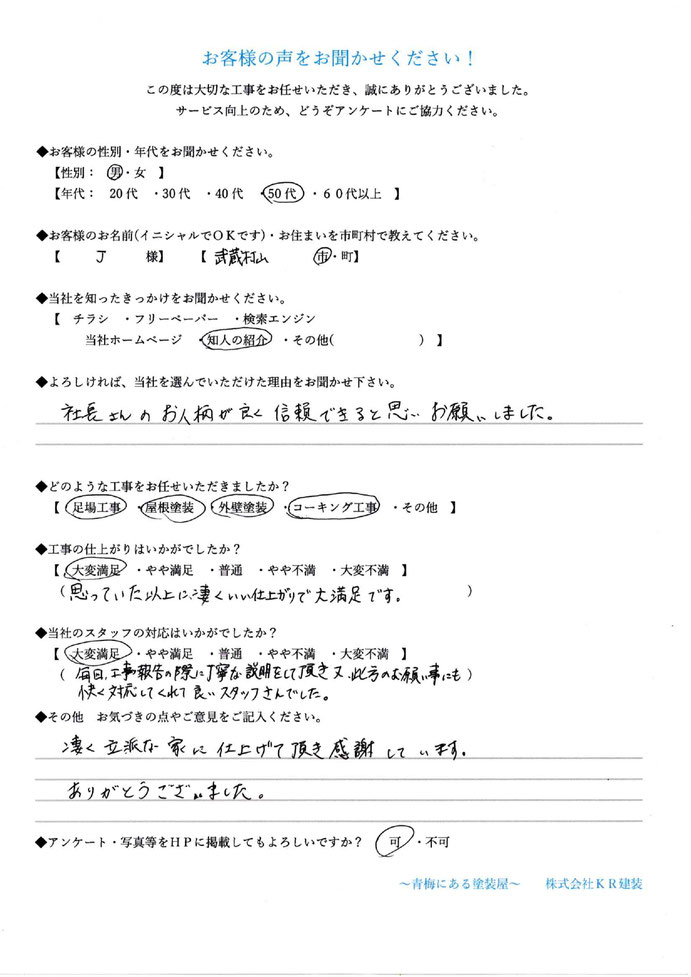 お客様の声をお聞かせください！
この度は大切な工事をお任せいただき、誠にありがとうございました。
サービス向上のため、どうぞアンケートにご協力ください。
◆お客様の性別・年代をお聞かせください。
【性別： 男・女 】
【年代： 20代 ・30代 ・40代 ・50代 ・６０代以上 】
◆お客様のお名前(イニシャルでＯＫです)・お住まいを市町村で教えてください。
【 J 様】 【 武蔵村山 市・町】
◆当社を知ったきっかけをお聞かせください。
【 チラシ ・フリーペーパー ・検索エンジン
当社ホームページ ・知人の紹介 ・その他( ) 】
◆よろしければ、当社を選んでいただけた理由をお聞かせ下さい。
社長さんのお人柄が良く信頼できると思いお願いしました。
◆どのような工事をお任せいただきましたか？
【 足場工事 ・屋根塗装 ・外壁塗装 ・コーキング工事 ・その他 】
◆工事の仕上がりはいかがでしたか？
【 大変満足 ・やや満足 ・普通 ・やや不満 ・大変不満 】
(思っていた以上に凄くいい仕上がりで大満足です。 )
◆当社のスタッフの対応はいかがでしたか？
【 大変満足 ・やや満足 ・普通 ・やや不満 ・大変不満 】
( 毎日、工事報告の際に丁寧な説明をして頂き又、此方のお願い事にも )
快く対応してくれて良いスタッフさんでした。
◆その他 お気づきの点やご意見をご記入ください。
凄く立派な家に仕上げて頂き感謝しています。
ありがとうございました。
◆アンケート・写真等をＨＰに掲載してもよろしいですか？ 可 ・不可
～青梅にある塗装屋～ 株式会社ＫＲ建装